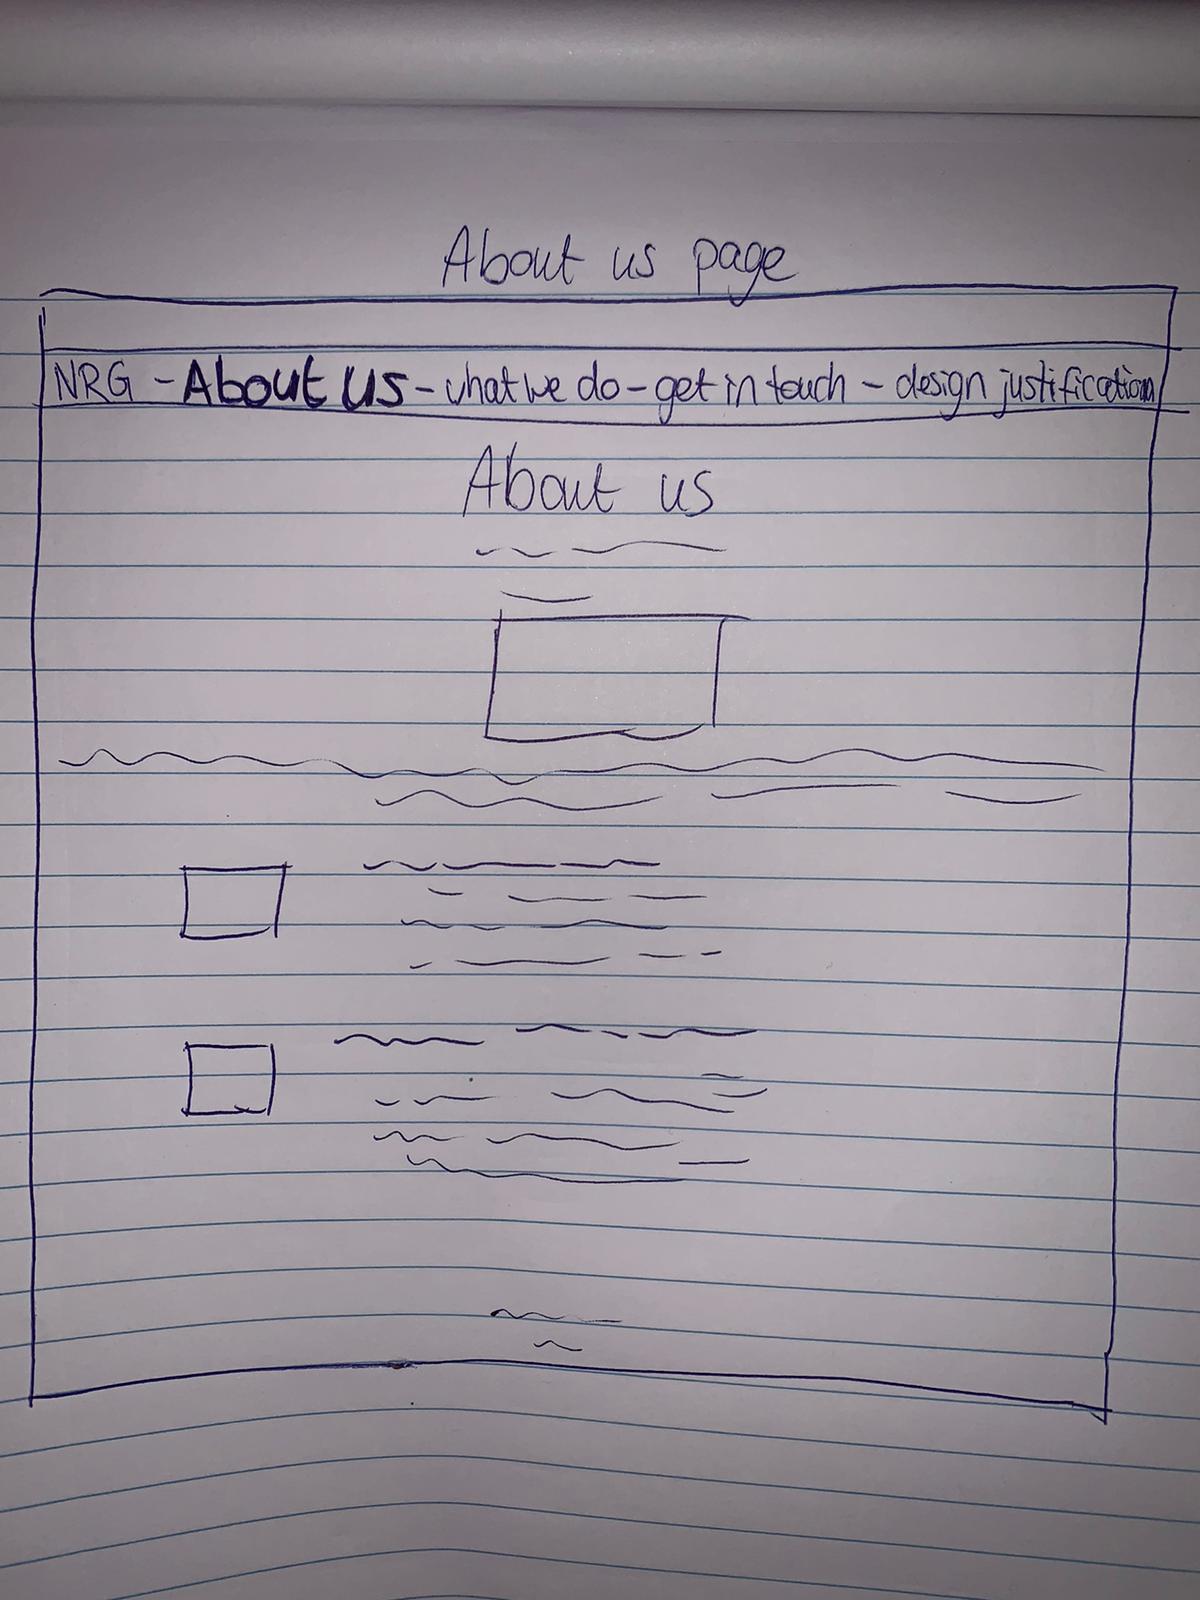 About us page
NRG - About us - what we do - get in touch - design justification
About us